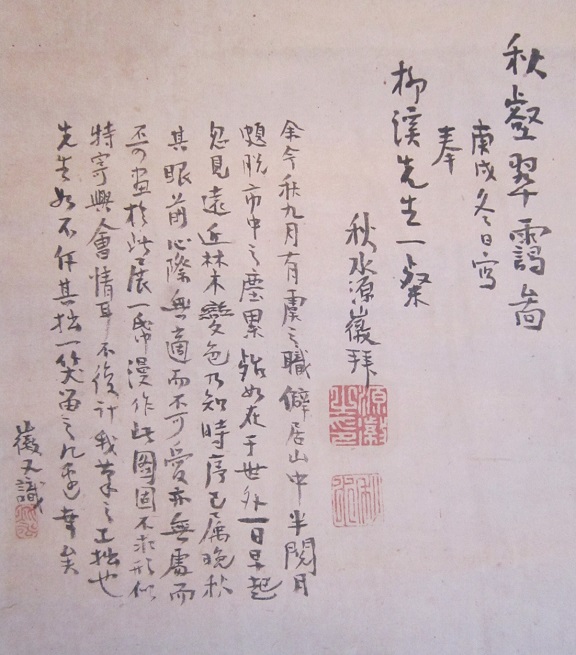 秋壑翠靄啚
庚戌冬日寫
奉
柳溪先生一粲
秋水源徽拜
余今秋九月有虞之職僻居山中半閲月
頗脱市中之塵累殆如在于世外一日早起
忽見遠近林木變色乃知時序已属晩秋
其眼前心際無適而不可愛亦無處而
不可畫於此展一帋漫作此圖固不求形似
特寄興會情耳不復計我筆之工拙也
先生如不斥其拙一笑留之几邊幸矣
徽又識
源徽之印